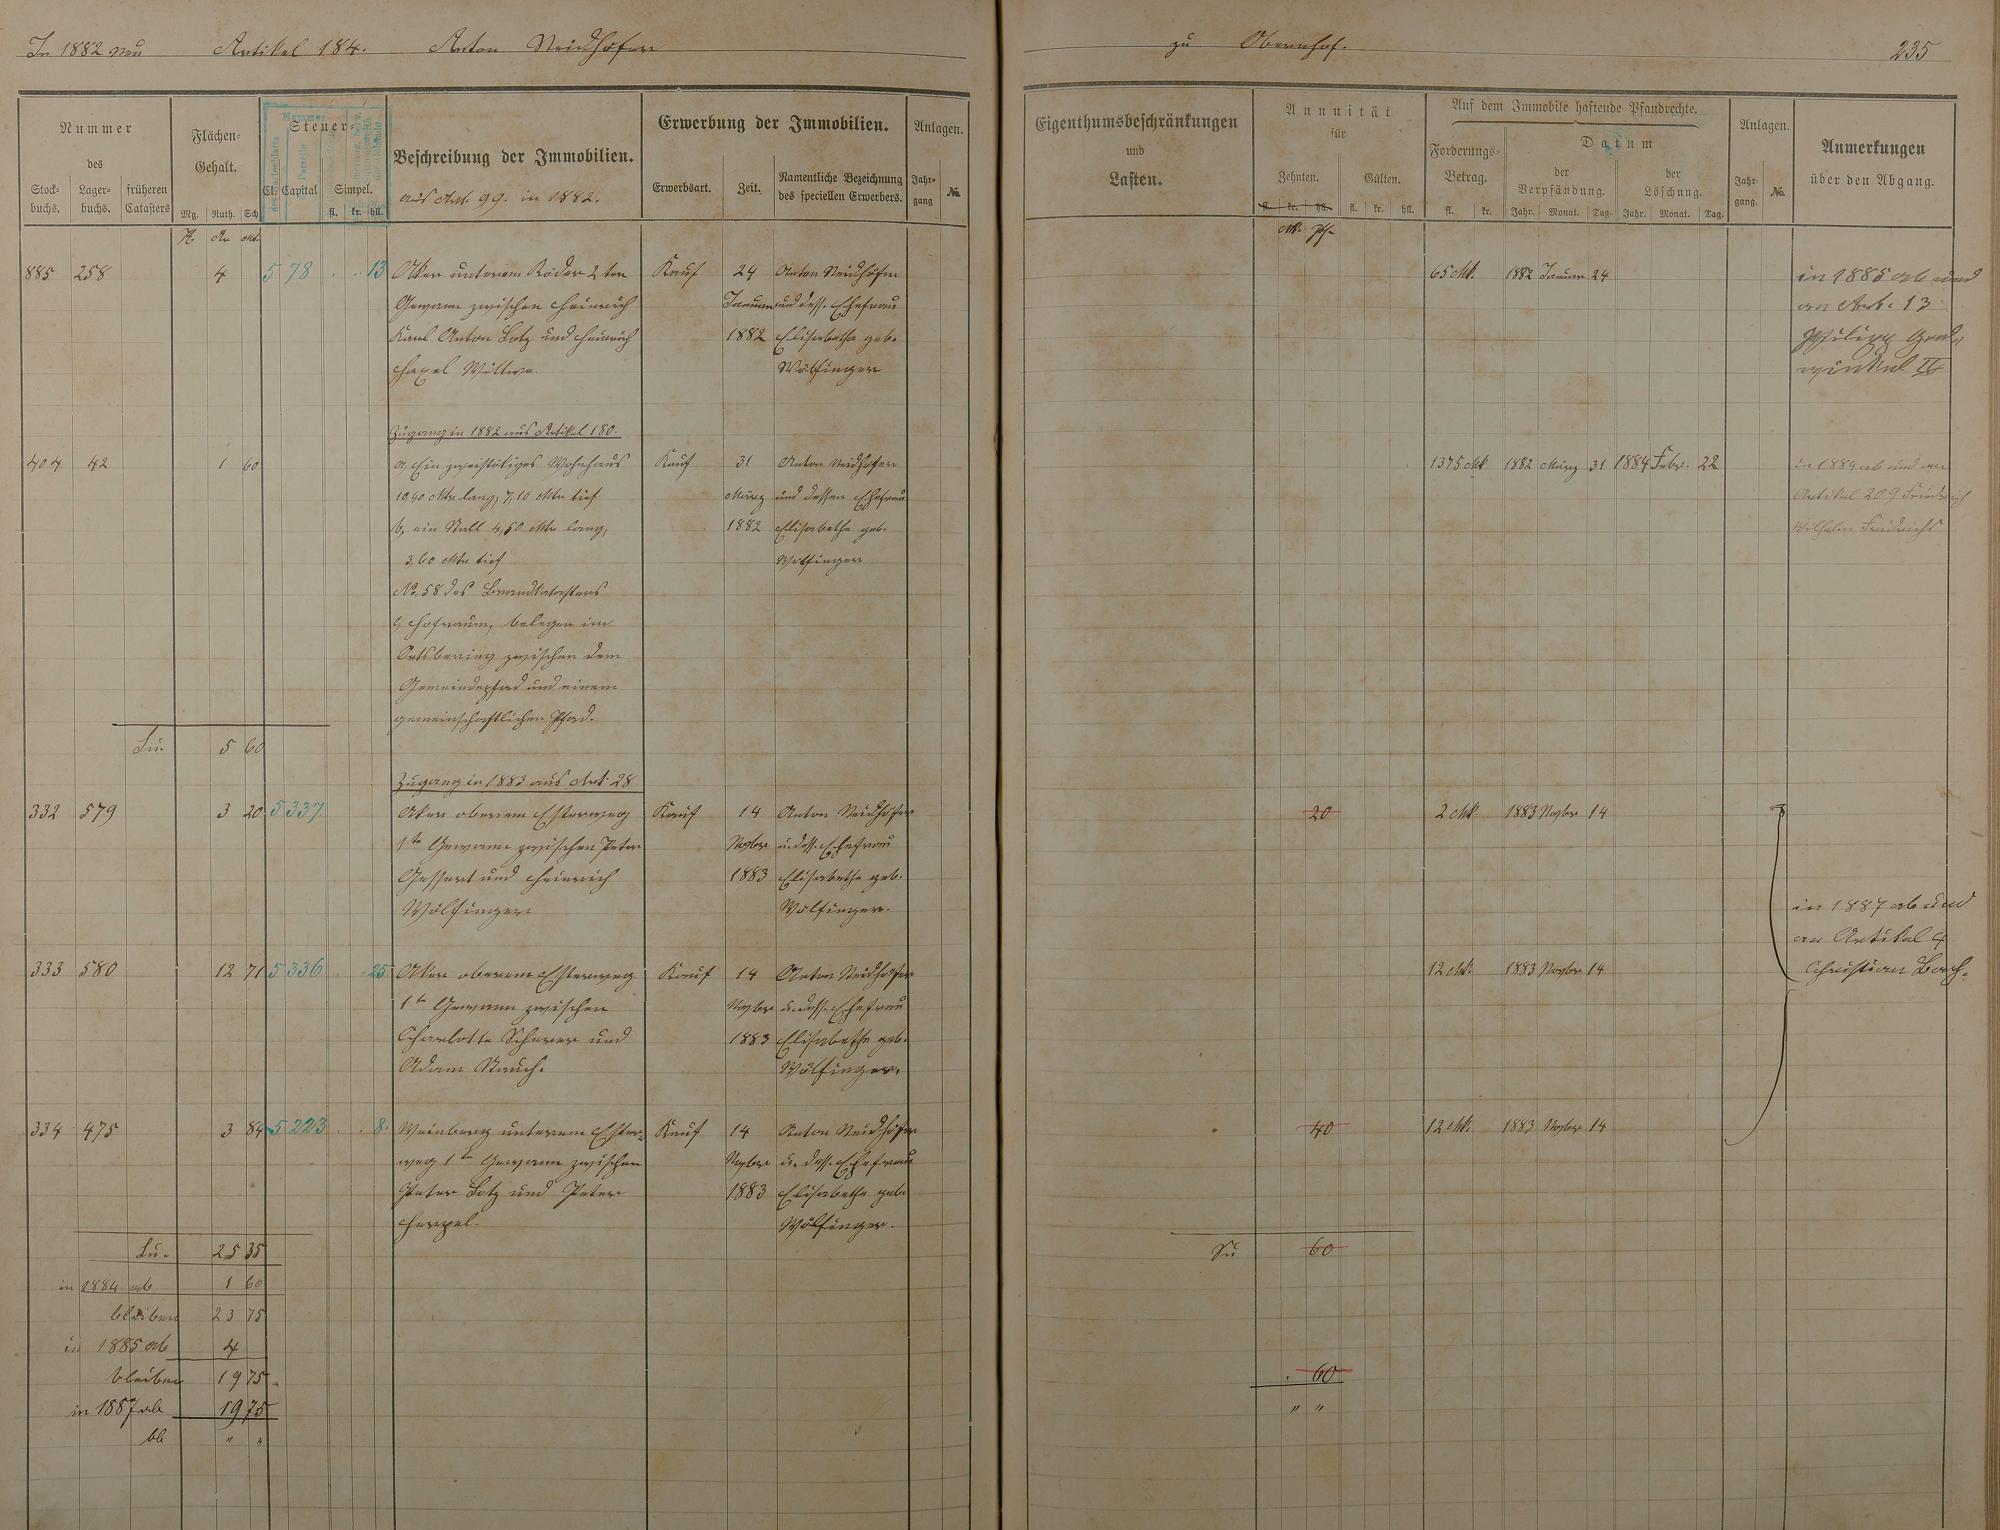 In 1882 neu Artikel 184. Anton Neidhöfer zu Obernhof. 235
Nummer
des
Stock-
buchs.
Lager-
buchs.
früheren
Catasters
Flächen-
Gehalt.
Mg. Ruth. Sch.
Nummer
des Kartenblatts
der Parzelle
Steuer-
Cl. Capital Simpel.
fl. kr. hll.
Beschreibung der Immobilien.
aus Art. 99. in 1882.
Erwerbung der Immobilien.
Erwerbsart. Zeit.
Namentliche Bezeichnung
des speciellen Erwerbers.
Anlagen.
Jahr-
gang
No.
Eigenthumsbeschränkungen
und
Lasten.
Annuität
für
Zehnten. Gülten.
fl. kr. hll. fl. kr. hll.
Mk. Pf.
Auf dem Immobile haftende Pfandrechte.
Forderungs-
Betrag.
fl. kr.
Datum
der
Verpfändung.
Jahr. Monat. Tag.
der
Löschung.
Jahr. Monat. Tag.
Anlagen.
Jahr-
gang.
No.
Anmerkungen
über den Abgang.
H. Ar Mtr.
885 258 4 5 78 13 Acker unterem Röder 2ten Kauf 24 Anton Neidhöfer 65 Mk. 1882 Januar 24 in 1885 ab und
Gewann zwischen Heinrich Januar und dess. Ehefrau an Art. 13
Karl Anton Lotz und Heinrich 1882 Elisabethe geb. Philipp
Wittwe. Wölfinger winkel II
Zugang in 1882 aus Artikel 180.
404 42 1 60 a, Ein zweistöckiges Wohnhaus Kauf 31 Anton Neidhöfer 1375 Mk 1882 März 31 1884 Febr. 22 in 1884 ab und an
10,40 Mtr lang, 7,10 Mtr tief März und dessen Ehefrau Artikel 209 Friedrich
b, ein Stall 4,50 Mtr lang, 1882 Elisabethe geb. Wilhelm Friedrichs
3,60 Mtr tief Wölfinger
No. 58 des Brandkatasters
c, Hofraum, belegen im
Ortsbering zwischen dem
Gemeindepfad und einem
gemeinschaftlichen Pfad.
Su. 5 60
Zugang in 1883 aus Art. 28
332 579 3 20 5 337 Acker oberem Esterweg Kauf 14 Anton Neidhöfer 20 2 Mk. 1883 Novbr 14
1te Gewann zwischen Peter Novbr u. dess. Ehefrau
Gessert und Heinrich 1883 Elisabethe geb.
Wölfinger Wölfinger. in 1887 ab und
an Artikel 4
333 580 12 71 5 336 25 Acker oberem Esterweg Kauf 14 Anton Neidhöfer 12 Mk. 1883 Novbr 14 Christian Bach.
1te Gewann zwischen Novbr u. dess. Ehefrau
Charlotte Scherer und 1883 Elisabethe geb.
Adam Rauch. Wölfinger.
334 475 3 84 5 223 8. Weinberg unterem Ester- Kauf 14 Anton Neidhöfer 40 12 Mk. 1883 Novbr 14
weg 1te Gewann zwischen Novbr u. dess. Ehefrau
Peter Lotz und Peter 1883 Elisabethe geb.
Wölfinger.
Su. 25 35 Su 60
in 1884 ab 1 60
bleiben 23 75
in 1885 ab 4
bleiben 19 75 60
in 1887 ab 19 75 " "
bl " "